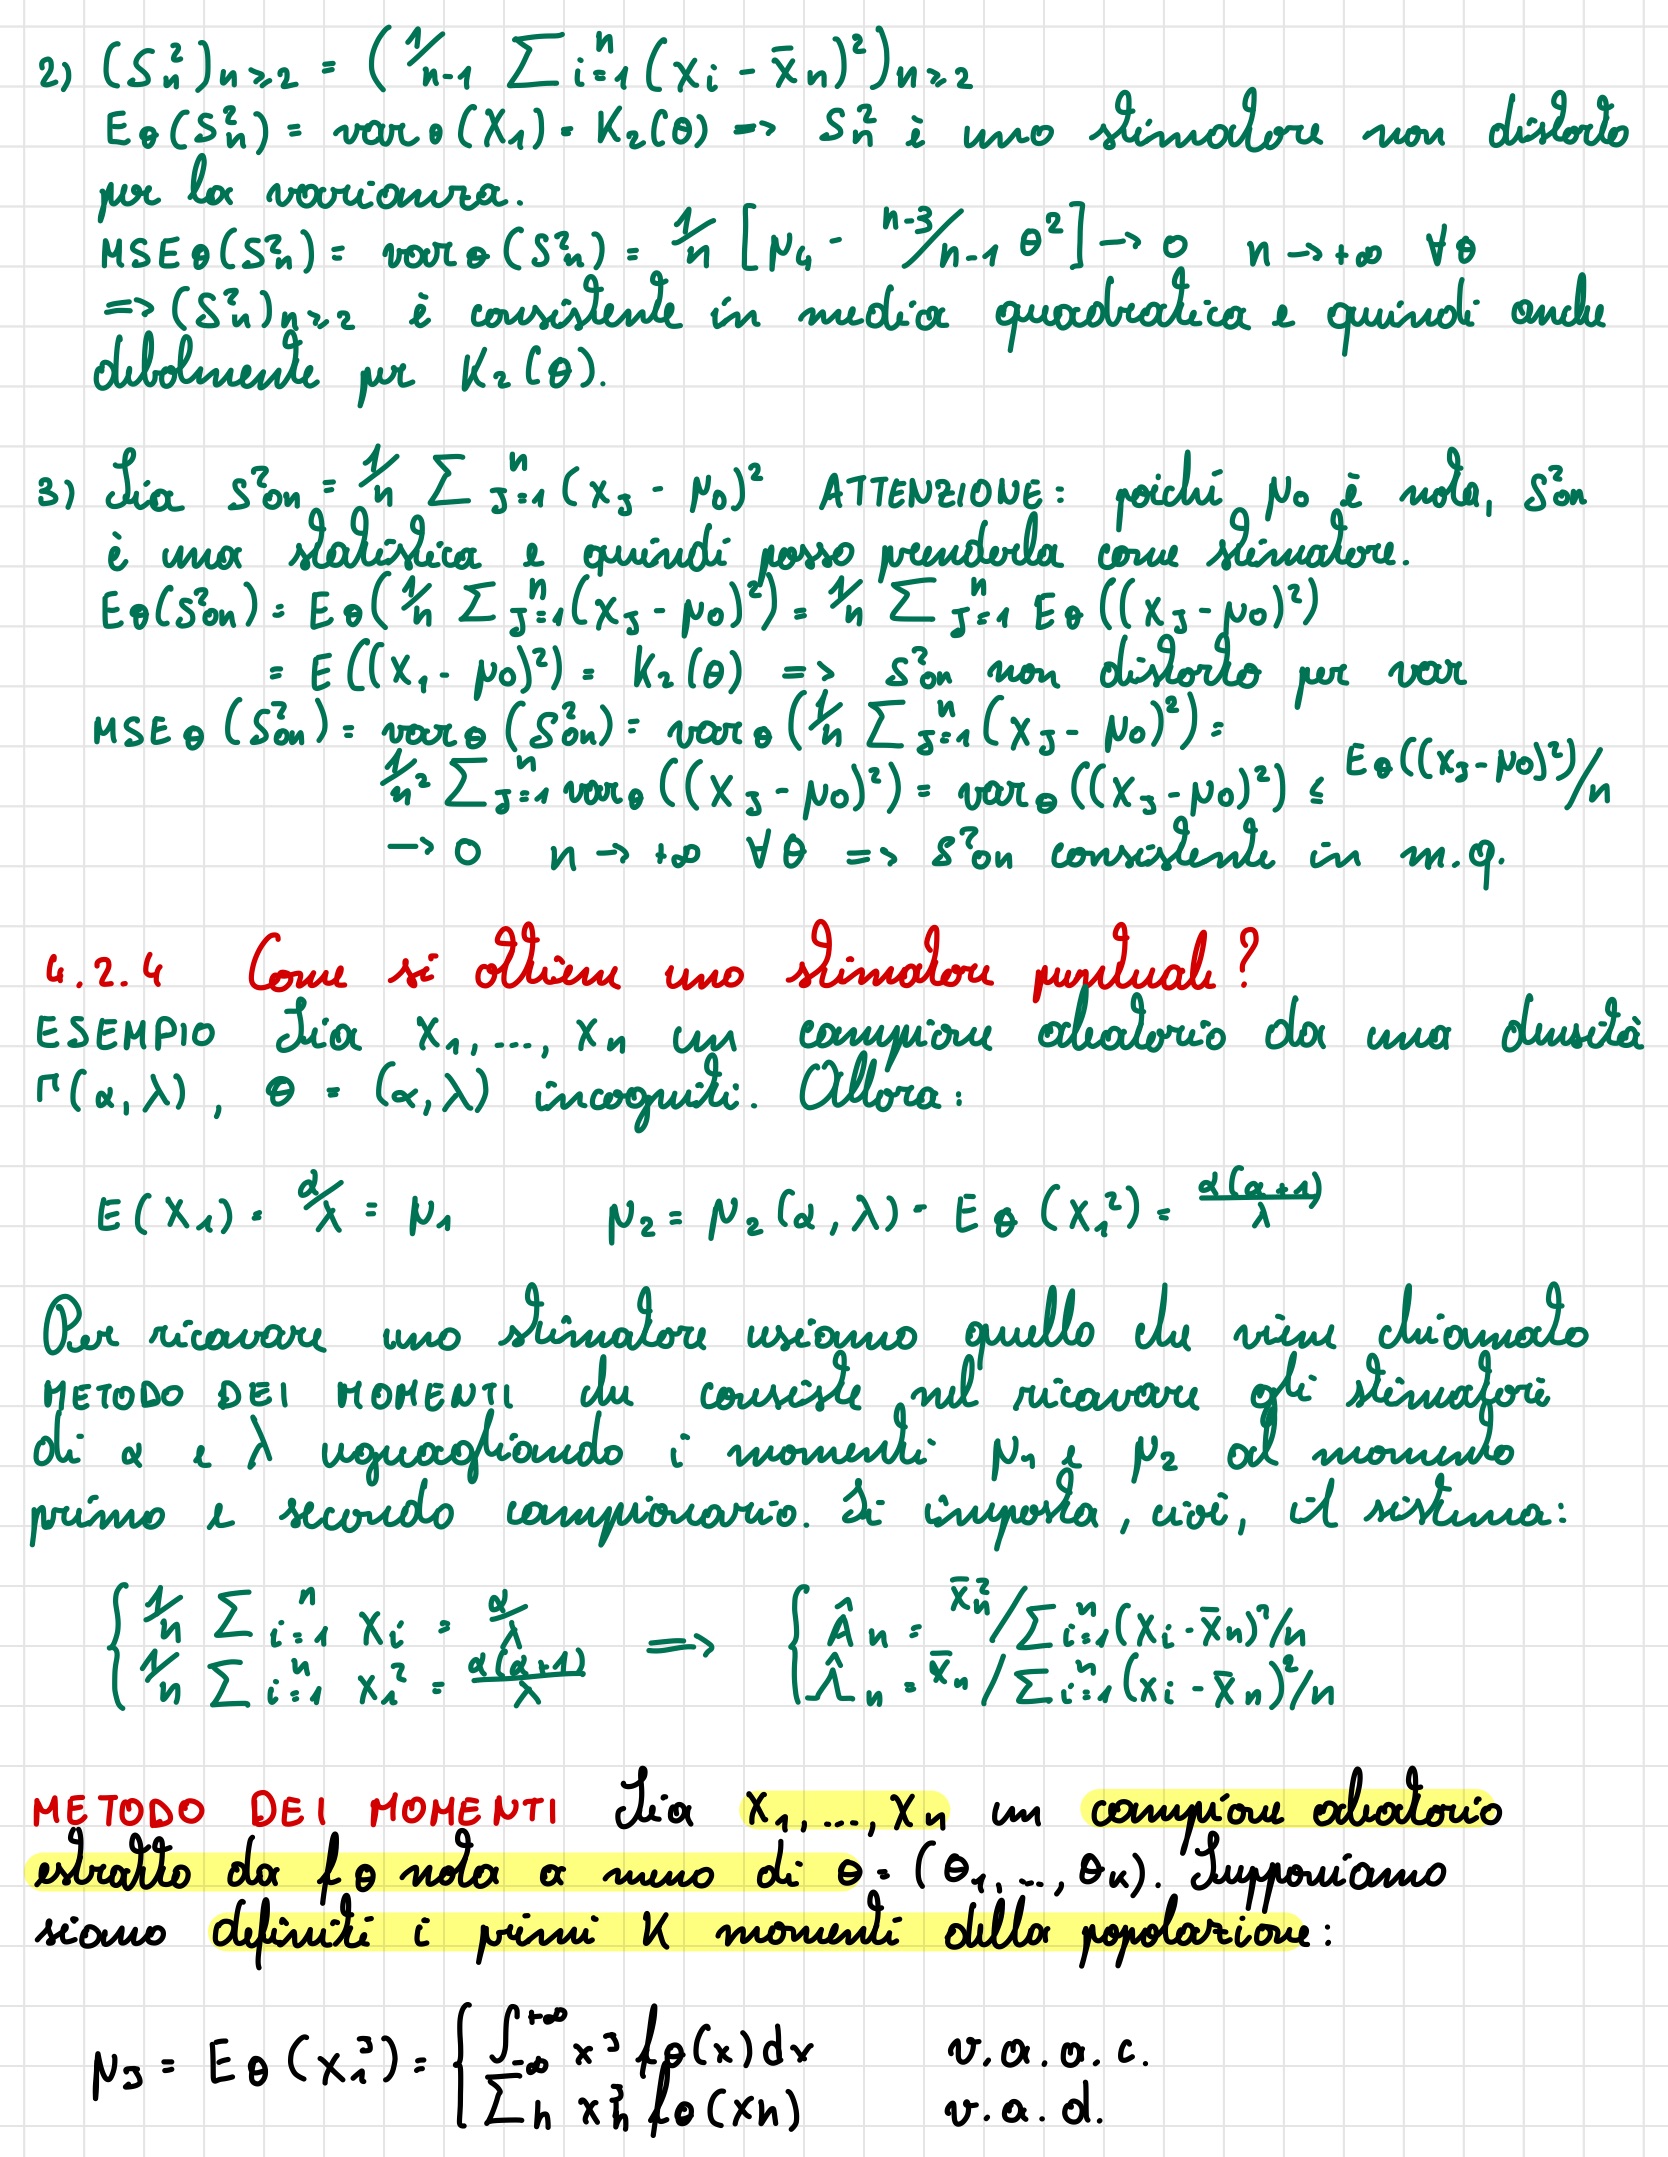 2) (S²n)n≥2 = (1/n-1 ∑ⁿi=1 (Xi - X̄n)²)n≥2
Eθ(S²n) = varθ(X1) = K2(θ) => S²n è uno stimatore non distorto
per la varianza.
MSEθ(S²n) = varθ(S²n) = 1/n [μ4 - n-3/n-1 θ²] → 0 n → +∞ ∀θ
=> (S²n)n≥2 è consistente in media quadratica e quindi anche
debolmente per K2(θ).
3) Sia S²0n = 1/n ∑ⁿJ=1 (XJ - μ0)² ATTENZIONE: poiché μ0 è nota, S²0n
è una statistica e quindi posso prenderla come stimatore.
Eθ(S²0n) = Eθ(1/n ∑ⁿJ=1 (XJ - μ0)²) = 1/n ∑ⁿJ=1 Eθ((XJ - μ0)²)
= E((X1 - μ0)²) = K2(θ) => S²0n non distorto per var
MSEθ(S²0n) = varθ(S²0n) = varθ(1/n ∑ⁿJ=1 (XJ - μ0)²) =
1/n² ∑ⁿJ=1 varθ((XJ - μ0)²) = varθ((XJ - μ0)²) ≤ Eθ((XJ - μ0)²)/n
→ 0 n → +∞ ∀θ => S²0n consistente in m.q.
4.2.4 Come si ottiene uno stimatore puntuale?
ESEMPIO Sia X1, ..., Xn un campione aleatorio da una densità
Γ(α, λ), θ = (α, λ) incogniti. Allora:
E(X1) = α/λ = μ1 μ2 = μ2(α, λ) = Eθ(X1²) = α(α+1)/λ
Per ricavare uno stimatore usiamo quello che viene chiamato
METODO DEI MOMENTI che consiste nel ricavare gli stimatori
di α e λ uguagliando i momenti μ1 e μ2 al momento
primo e secondo campionario. Si imposta, cioè, il sistema:
{ 1/n ∑ⁿi=1 Xi = α/λ => { Ân = X̄n²/∑ⁿi=1(Xi - X̄n)²/n
1/n ∑ⁿi=1 Xi² = α(α+1)/λ Λ̂n = X̄n/∑ⁿi=1(Xi - X̄n)²/n
METODO DEI MOMENTI Sia X1, ..., Xn un campione aleatorio
estratto da fθ nota a meno di θ = (θ1, ..., θK). Supponiamo
siano definiti i primi K momenti della popolazione:
μJ = Eθ(X1ᴶ) = { ∫+∞-∞ xᴶ fθ(x)dx v.a.a.c.
∑h xᴶh fθ(xh) v.a.d.